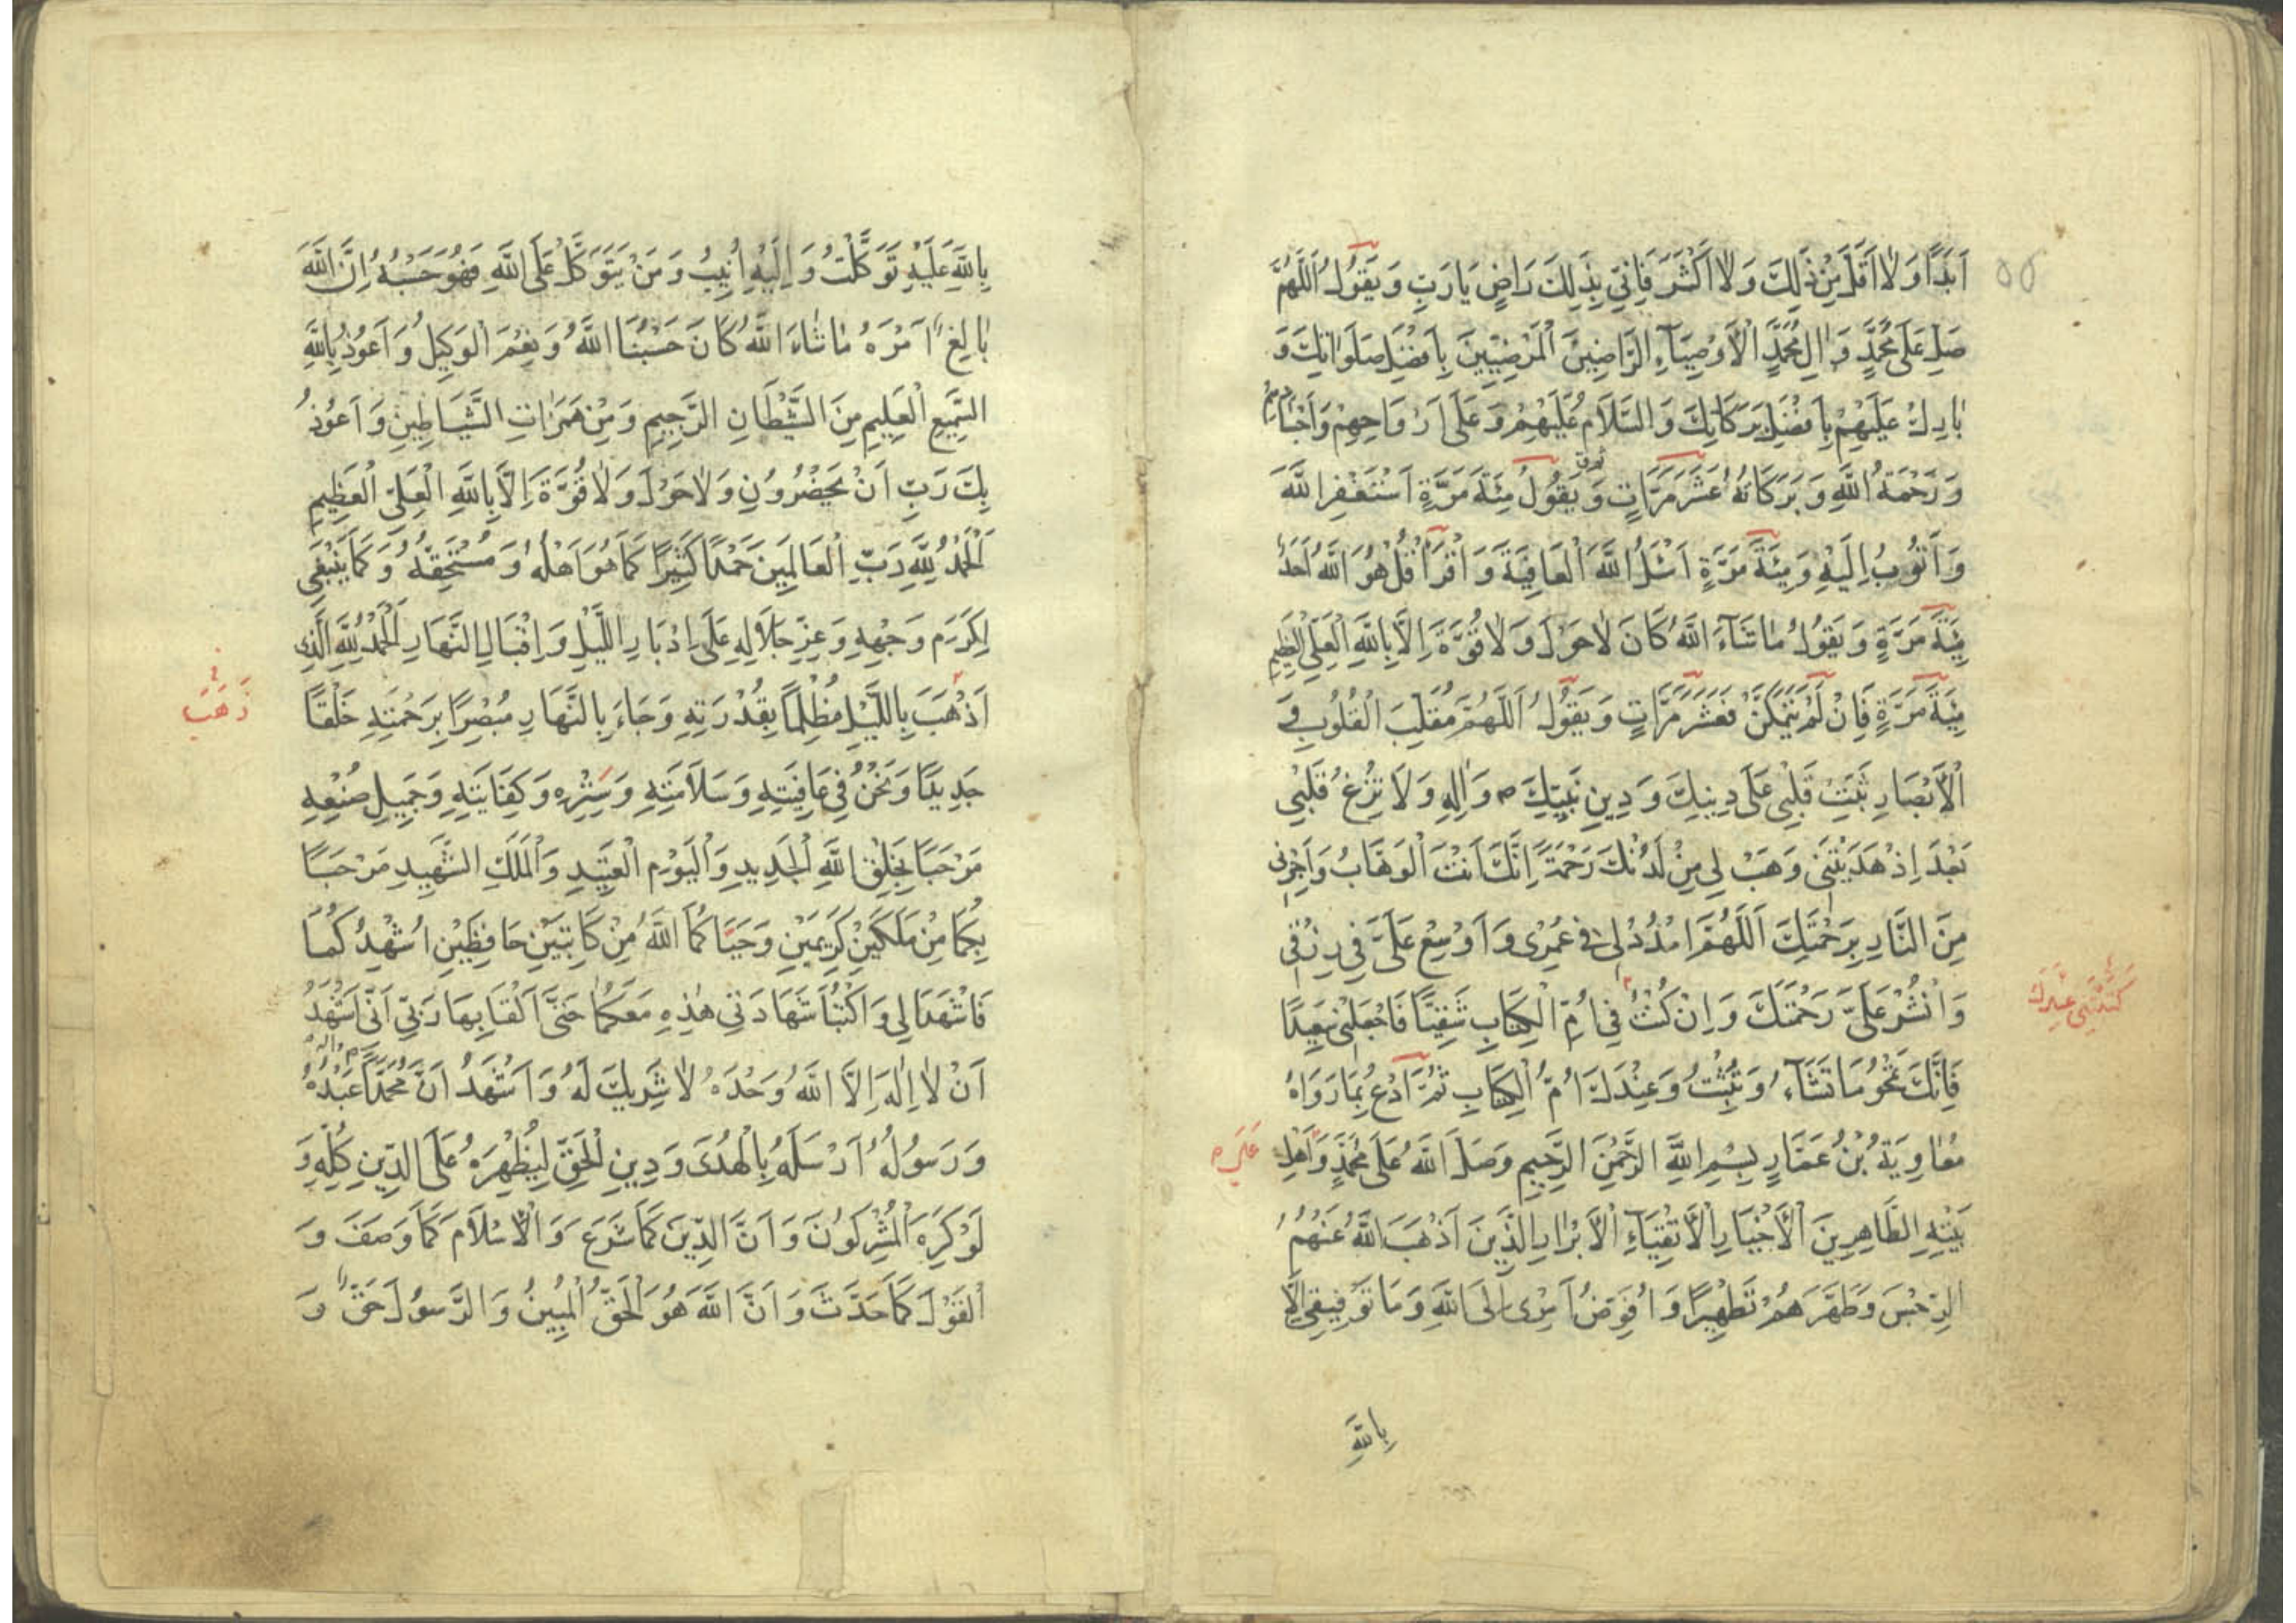 ۵۵
اَبَدًا وَلاٰ اَقَلَّ مِنْ ذٰلِكَ وَلاٰ اَكْثَرَ فَاِنّي بِذٰلِكَ رَاضٍ يَا رَبِّ وَيَقُولُ اَللّٰهُمَّ
صَلِّ عَلىٰ مُحَمَّدٍ وَاٰلِ مُحَمَّدٍ الْاَوْصِيَآءِ الرَّاضِينَ الْمَرْضِيِّينَ بِاَفْضَلِ صَلَوٰاتِكَ وَ
بٰارِكْ عَلَيْهِمْ بِاَفْضَلِ بَرَكَاتِكَ وَالسَّلاَمُ عَلَيْهِمْ وَعَلىٰ اَرْوَاحِهِمْ وَاَجْسَادِهِمْ
وَرَحْمَةُ اللّٰهِ وَبَرَكَاتُهُ عَشْرَ مَرَّاتٍ وَيَقُولُ مِئَةَ مَرَّةٍ اَسْتَغْفِرُ اللّٰهَ
وَاَتُوبُ اِلَيْهِ وَمِئَةَ مَرَّةٍ اَسْئَلُ اللّٰهَ الْعَافِيَةَ وَاقْرَأْ قُلْ هُوَ اللّٰهُ اَحَدٌ
مِئَةَ مَرَّةٍ وَيَقُولُ مٰا شَآءَ اللّٰهُ كَانَ لاٰ حَوْلَ وَلاٰ قُوَّةَ اِلاَّ بِاللّٰهِ الْعَلِيِّ الْعَظِيمِ
مِئَةَ مَرَّةٍ فَاِنْ لَمْ يَتَمَكَّنْ فَعَشْرَ مَرَّاتٍ وَيَقُولُ اَللّٰهُمَّ مُقَلِّبَ الْقُلُوبِ وَ
الْاَبْصَارِ ثَبِّتْ قَلْبِي عَلىٰ دِينِكَ وَدِينِ نَبِيِّكَ ص وَاٰلِهِ وَلاَ تُزِغْ قَلْبِي
بَعْدَ اِذْ هَدَيْتَنِي وَهَبْ لِي مِنْ لَدُنْكَ رَحْمَةً اِنَّكَ اَنْتَ الْوَهَّابُ وَاَجِرْنِي
مِنَ النَّارِ بِرَحْمَتِكَ اَللّٰهُمَّ امْدُدْ لِي فِي عُمْرِي وَاَوْسِعْ عَلَيَّ فِي رِزْقِي
وَانْشُرْ عَلَيَّ رَحْمَتَكَ وَاِنْ كُنْتُ فِي اُمِّ الْكِتَابِ شَقِيًّا فَاجْعَلْنِي سَعِيدًا
فَاِنَّكَ تَمْحُو مَا تَشَآءُ وَتُثْبِتُ وَعِنْدَكَ اُمُّ الْكِتَابِ ثُمَّ ادْعُ بِمَا رَوَاهُ
مُعٰاوِيَةُ بْنُ عَمَّارٍ بِسْمِ اللّٰهِ الرَّحْمٰنِ الرَّحِيمِ وَصَلَّى اللّٰهُ عَلىٰ مُحَمَّدٍ وَاَهْلِ
بَيْتِهِ الطَّاهِرِينَ الْاَخْيَارِ الْاَتْقِيَآءِ الْاَبْرٰارِ الَّذِينَ اَذْهَبَ اللّٰهُ عَنْهُمُ
الرِّجْسَ وَطَهَّرَهُمْ تَطْهِيرًا وَاُفَوِّضُ اَمْرِي اِلَى اللّٰهِ وَمَا تَوْفِيقِي اِلاَّ
بِاللّٰهِ
بِاللّٰهِ عَلَيْهِ تَوَكَّلْتُ وَاِلَيْهِ اُنِيبُ وَمَنْ يَتَوَكَّلْ عَلَى اللّٰهِ فَهُوَ حَسْبُهُ اِنَّ اللّٰهَ
بٰالِغُ اَمْرِهِ مٰا شٰاءَ اللّٰهُ كَانَ حَسْبُنَا اللّٰهُ وَنِعْمَ الْوَكِيلُ وَاَعُوذُ بِاللّٰهِ
السَّمِيعِ الْعَلِيمِ مِنَ الشَّيْطَانِ الرَّجِيمِ وَمِنْ هَمَزٰاتِ الشَّيَاطِينِ وَاَعُوذُ
بِكَ رَبِّ اَنْ يَحْضُرُونِ وَلاٰ حَوْلَ وَلاٰ قُوَّةَ اِلاَّ بِاللّٰهِ الْعَلِيِّ الْعَظِيمِ
اَلْحَمْدُ لِلّٰهِ رَبِّ الْعَالَمِينَ حَمْدًا كَثِيرًا كَمَا هُوَ اَهْلُهُ وَمُسْتَحِقُّهُ وَكَمَا يَنْبَغِي
لِكَرَمِ وَجْهِهِ وَعِزِّ جَلاَلِهِ عَلىٰ اِدْبَارِ اللَّيْلِ وَاِقْبَالِ النَّهَارِ اَلْحَمْدُ لِلّٰهِ الَّذِي
اَذْهَبَ بِاللَّيْلِ مُظْلِمًا بِقُدْرَتِهِ وَجَاءَ بِالنَّهَارِ مُبْصِرًا بِرَحْمَتِهِ خَلْقًا
ذَهَبَ
جَدِيدًا وَنَحْنُ فِي عَافِيَتِهِ وَسَلاَمَتِهِ وَسَتْرِهِ وَكِفَايَتِهِ وَجَمِيلِ صُنْعِهِ
مَرْحَبًا بِخَلْقِ اللّٰهِ الْجَدِيدِ وَالْيَوْمِ الْعَتِيدِ وَالْمَلَكِ الشَّهِيدِ مَرْحَبًا
بِكُمَا مِنْ مَلَكَيْنِ كَرِيمَيْنِ وَحَيَّاكُمَا اللّٰهُ مِنْ كَاتِبَيْنِ حَافِظَيْنِ اُشْهِدُكُمَا
فَاشْهَدَا لِي وَاكْتُبَا شَهَادَتِي هٰذِهِ مَعَكُمَا حَتَّى اَلْقَا بِهَا رَبِّي اَنِّي اَشْهَدُ
اَنْ لاٰ اِلٰهَ اِلاَّ اللّٰهُ وَحْدَهُ لاٰ شَرِيكَ لَهُ وَاَشْهَدُ اَنَّ مُحَمَّدًا عَبْدُهُ
وَرَسُولُهُ اَرْسَلَهُ بِالْهُدىٰ وَدِينِ الْحَقِّ لِيُظْهِرَهُ عَلَى الدِّينِ كُلِّهِ وَ
لَوْ كَرِهَ الْمُشْرِكُونَ وَاَنَّ الدِّينَ كَمَا شَرَعَ وَالْاِسْلاَمَ كَمَا وَصَفَ وَ
الْقَوْلَ كَمَا حَدَّثَ وَاَنَّ اللّٰهَ هُوَ الْحَقُّ الْمُبِينُ وَالرَّسُولَ حَقٌّ وَ